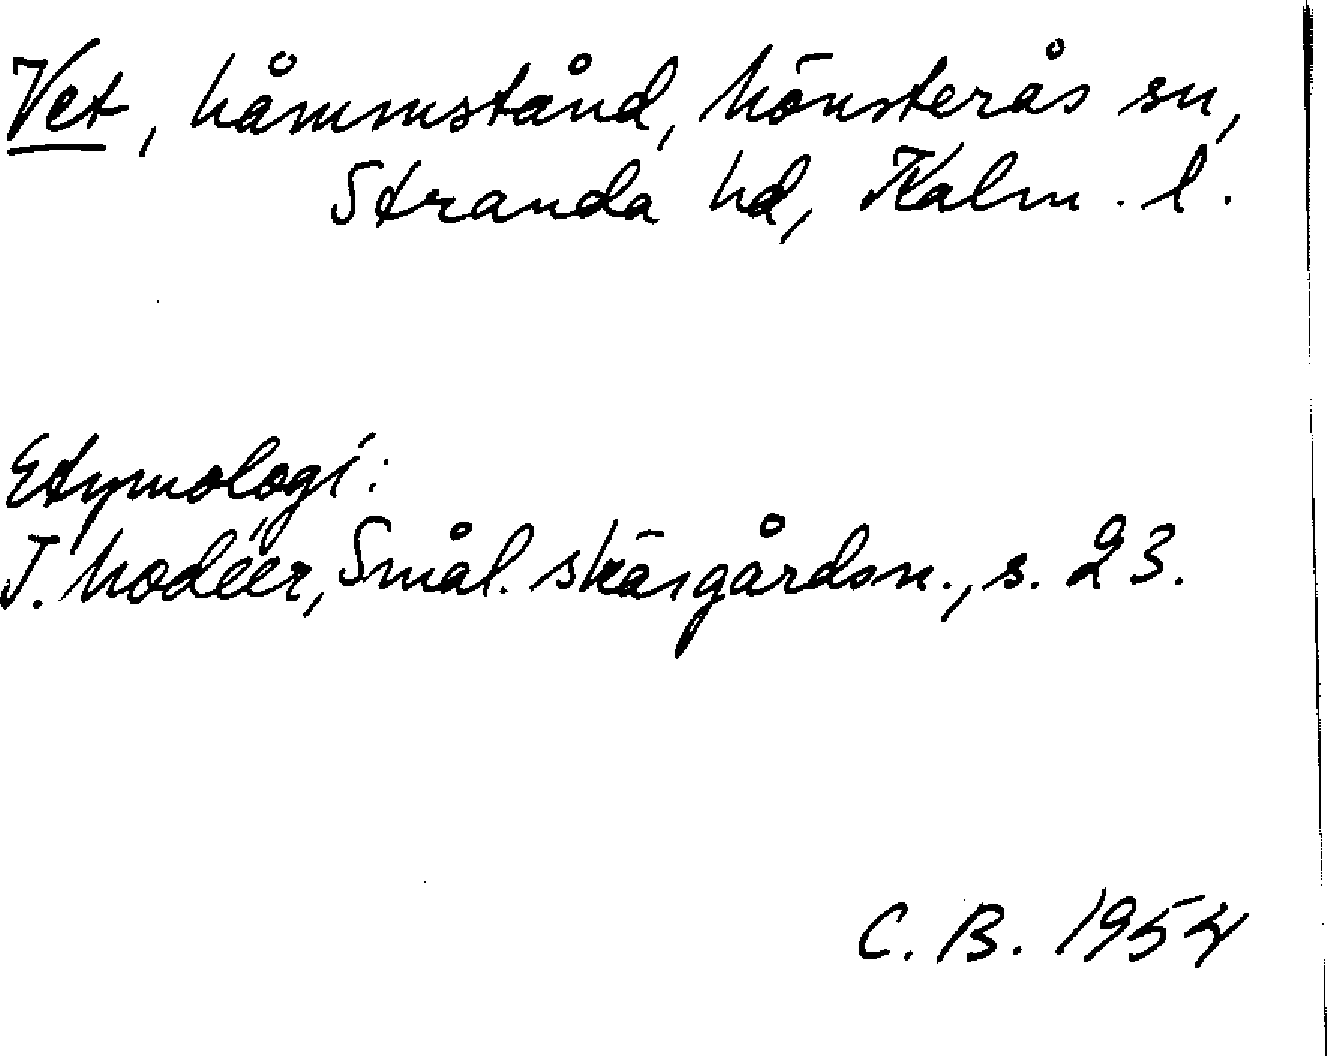 Vet, håmmstånd, Mönsterås sn,
Stranda hd, Kalm. l.
Etymologi:
I. Modéer, Smål. skärgårdsn., s. 23.
C. B. 1954